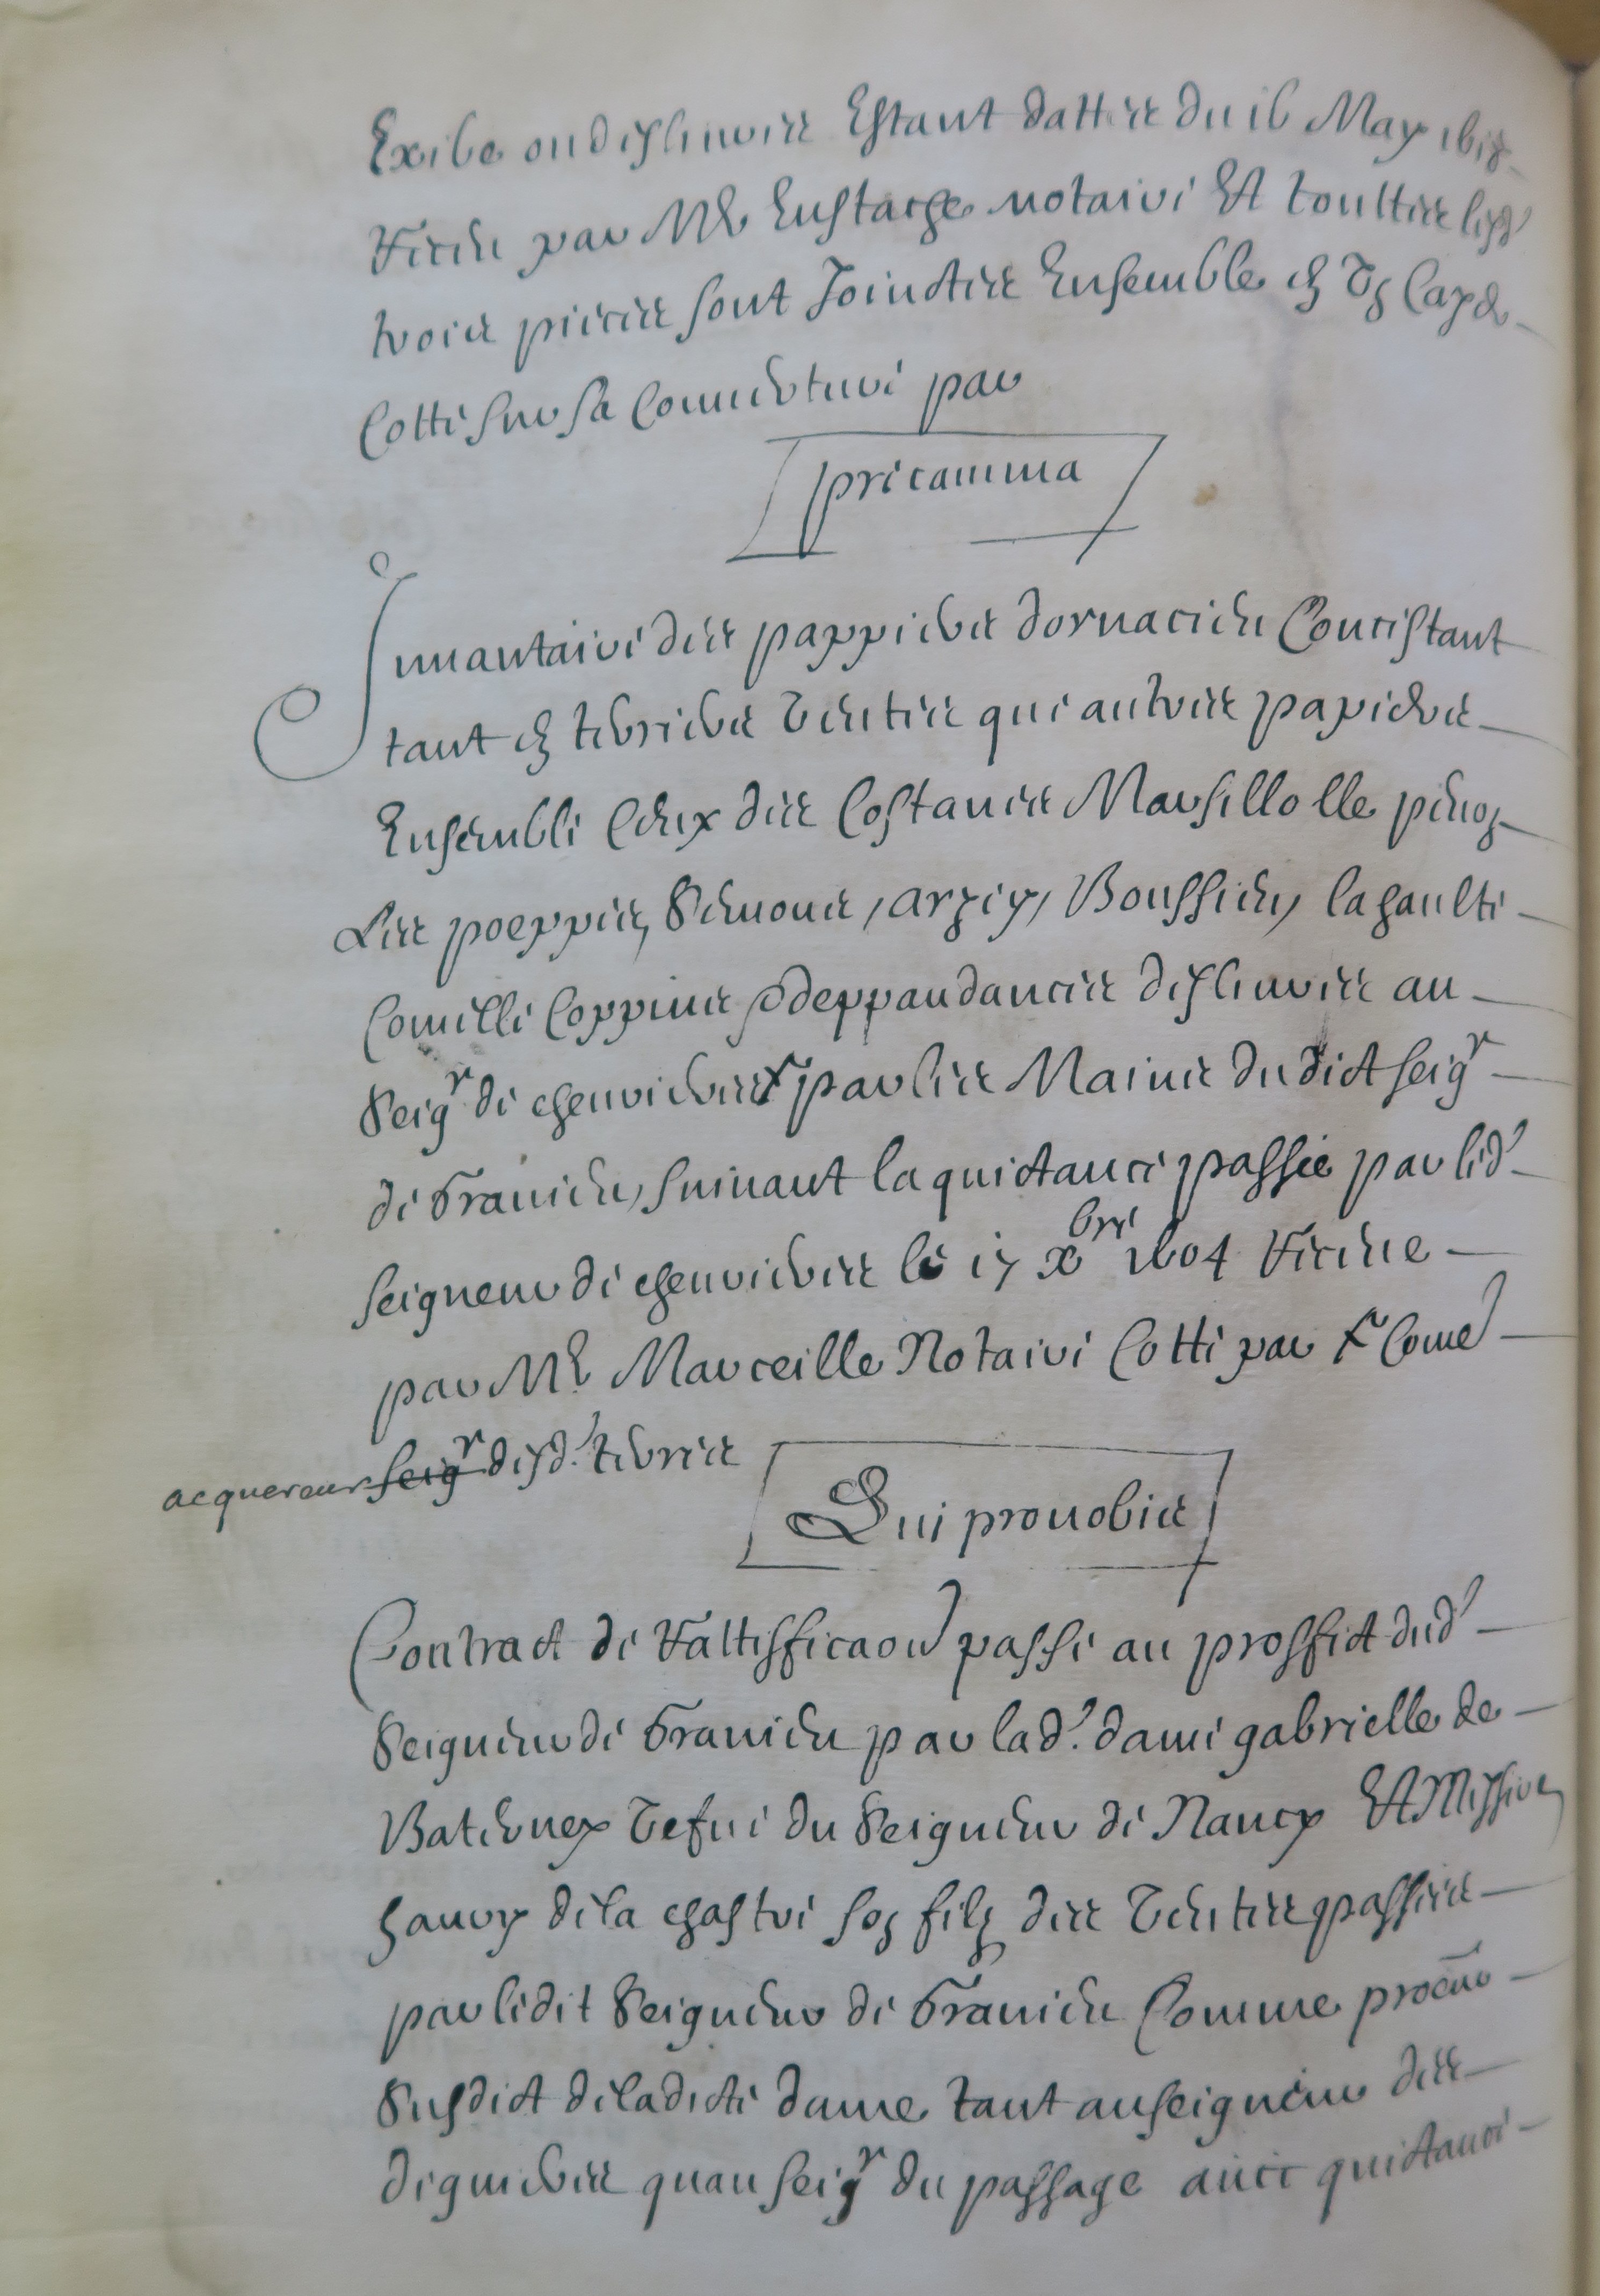 Exibe ou deslivrees Estant dattee du 16 May 1618
Receu par Me Eustache notaire Et touttes lesd'
trois pieces sont Joinctes Ensemble en Ung Cayer
Cotté sur sa Couverture par
precamina
Innvantaire des pappiers dornacieu Concistant
tant en terriers Ventes que autres papiers
Ensemble Ceux des Costances Marsillolle
Les poeppes, Semons, arzey, Boussieu, la gaulte
Comelle Coppins & deppandances deslivrees au
Seigr de chenvieres par les Mains du dict seigr
de Granieu, suivant la quictance passee par led'
seigneur de chenvieres le 17 xbre 1604 Receue
par Me Marceille Notaire Cotté par Come
acquereur seigr desd' terres
Qui pro nobis
Contract de Rattifficaon passe au proffict dud'
Seigneur de Granieu par lad' dame gabrielle de
Baterney Vefve du Seigneur de Nancy Et Messire
henry de la chastre son filz des Ventes passees
par ledit Seigneur de Granieu Comme procur
Susdict de ladicte dame tant au seigneur des
diguieres quau seigr du passage avec quictance